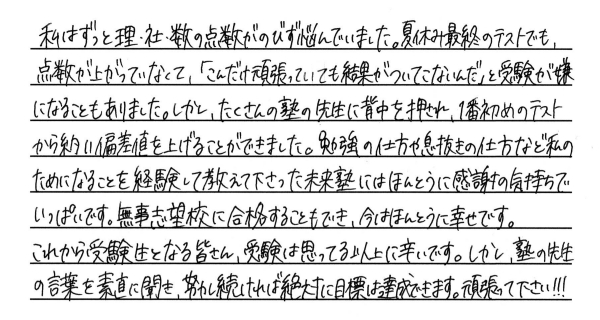 私はずっと理・社・数の点数がのびず悩んでいました。夏休み最終のテストでも、
点数が上がっていなくて、「こんだけ頑張っていても結果がついてこないんだ」と受験が嫌
になることもありました。しかし、たくさんの塾の先生に背中を押され、1番初めのテスト
から約11偏差値を上げることができました。勉強の仕方や息抜きの仕方など私の
ためになることを経験して教えて下さった未来塾にはほんとうに感謝の気持ちで
いっぱいです。無事志望校に合格することもでき、今はほんとうに幸せです。
これから受験生となる皆さん、受験は思ってる以上に辛いです。しかし、塾の先生
の言葉を素直に聞き、努力し続ければ絶対に目標は達成できます。頑張って下さい!!!